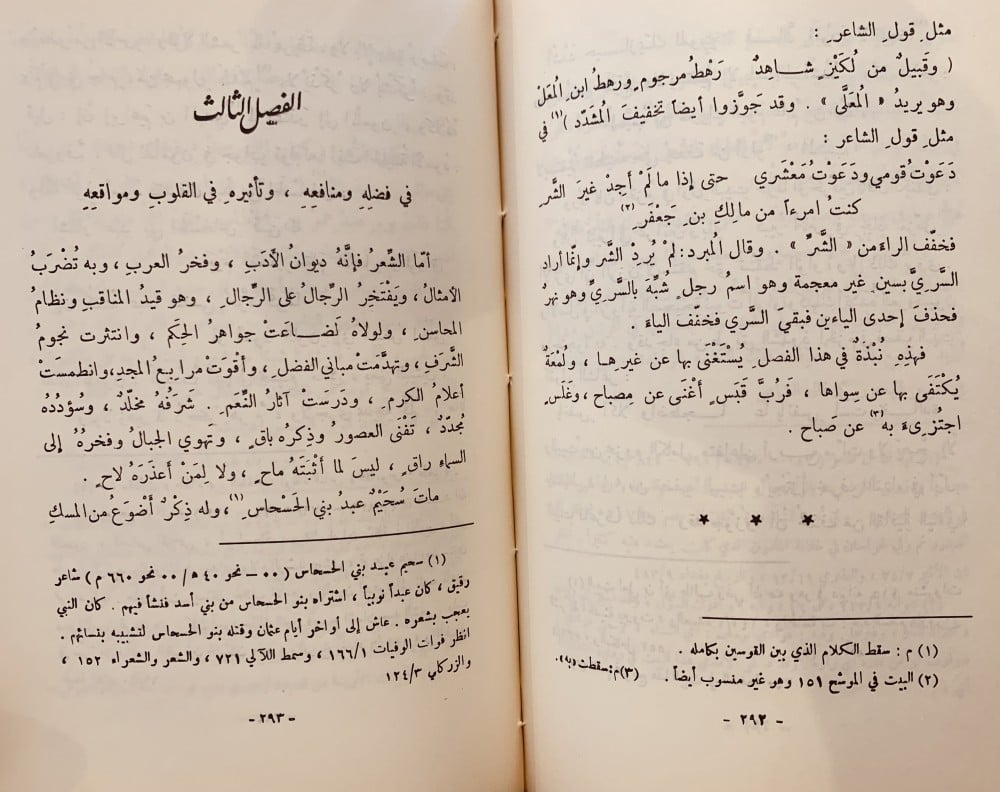 مثل ِ قول ِ الشاعر ِ :
( وقَبيلٌ من لُكَيْز ٍ شــاهِدٌ رَهْطُ مرجوم ٍ ورهطُ ابن ِ المُعَلْ
وهو يريدُ « المُعَلَّى » . وقد جَوَّزوا أيضاً تخفيفَ المُشَدَّد )(١) في
مثل ِ قول ِ الشاعر :
دَعَوْتُ قومي ودَعَوْتُ مَعْشَري حتى إذا ما لَمْ أجِدْ غيرَ الشَّرِ
كنتُ امرءاً من مالِكِ بن ِ جَعْفَر ِ (٢)
فخفّف الراءَ من « الشَّرِّ » . وقال المُبرد : لمْ يُرِدْ الشَّر وإنَّما أراد
السَّريَّ بسين ٍ غير معجمة وهو اسمُ رجل ٍ شُبِّهَ بالسَّريِّ وهو نهرٌ
فحذفَ إحدى الياءين فبقيَ السَّري فخفّف الياءَ .
فهذهِ نُبْذَةٌ في هذا الفصل ِ يُسْتَغْنَى بها عن غير ِهـا ، ولُمْعَةٌ
يُكْتَفَى بها عن سِواها ، فَرُبَّ قَبَس ٍ أغْنَى عن مِصباح ٍ ، وغَلَس ٍ
اجتُزِىءَ به(٣) عن صَباح .
★ ★ ★
(١) م : سقط الكلام الذي بين القوسين بكامله .
(٢) البيت في الموشح ١٥١ وهو غير منسوب أيضاً . (٣) م : سقطت «به» .
- ٢٩٢ -
الفصل الثالث
في فضلِهِ ومنافعِهِ ، وتأثيره ِ في القلوبِ ومواقعِهِ
أمّا الشِّعْرُ فإنَّهُ ديوانُ الأدَبِ ، وفخرُ العربِ ، وبه تُضْرَبُ
الأمثالُ ، ويَفْتَخِرُ الرِّجالُ على الرِّجالِ ، وهو قيدُ المناقبِ ونظامُ
المحاسن ِ ، ولولاهُ لَضــاعَتْ جواهرُ الحِكَم ِ ، وانتثرت نجومُ
الشَّرَفِ ، وتهدَّمَتْ مباني الفضل ِ ، وأقْوَتْ مرابِعُ المجدِ ، وانطمسَتْ
أعلامُ الكرم ِ ، ودَرَسَتْ آثارُ النِّعَم ِ . شرَفُهُ مخلَّدٌ ، وسُؤدُدُهُ
مُجدَّدٌ ، تَفْنَى العصورُ وذِكرُه باق ٍ ، وتَهوي الجبالُ وفخرُهُ إلى
السماءِ راق ٍ ، ليسَ لما أثْبَتَهُ ماح ٍ ، ولا لِمَنْ أعذَرَهُ لاح ٍ .
ماتَ سُحَيْمٌ عبدُ بني الحَسْحاس ِ(١) ، وله ذِكْرٌ أضْوَعُ من المسكِ
(١) سحيم عبـد بني الحسحاس ( ٠٠ – نحو ٤٠ ه / ٠٠ نحو ٦٦٠ م ) شاعر
رقيق ، كان عبداً نوبياً ، اشتراه بنو الحسحاس من بني أسد فنشأ فيهم . كان النبي
يعجب بشعره . عاش إلى أواخر أيام عثمان وقتله بنو الحسحاس لتشبيبه بنسائهم .
انظر فوات الوفيات ١٦٦/١ ، وسمط اللآلي ٧٢١ ، والشعر والشعراء ١٥٢ ،
والزركلي ١٢٤/٣
- ٢٩٣ -